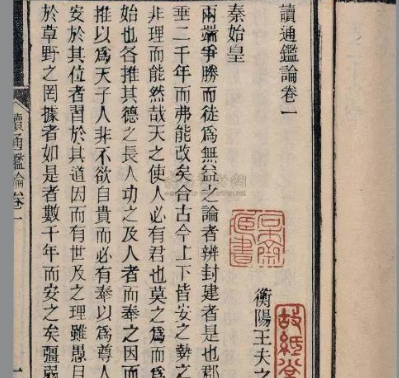 讀通鑑論卷一
衡陽王夫之
秦始皇
兩端爭勝而徒爲無益之論者辨封建者是也郡
垂二千年而弗能改矣合古今上下皆安之勢之
非理而能然哉天之使人必有君也莫之爲而爲
始也各推其德之長人功之及人者而奉之因而
推以爲天子人非不欲自貴而必有奉以爲尊人
安於其位者習於其道因而有世及之理雖愚且
於草野之罔據者如是者數千年而安之矣彊弱
讀通鑑論 卷一
一